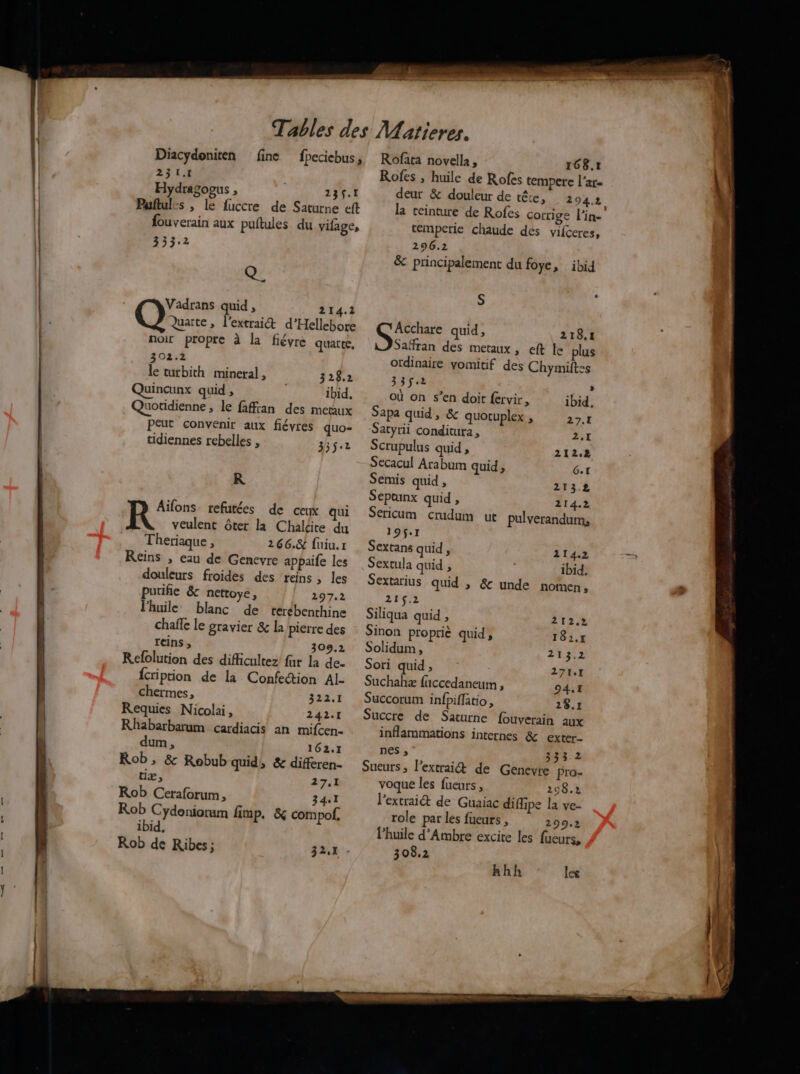 Tables des Matieres.
Diacydoniten sine speciebus,
231.1
Hydragogus, 235.1
Pustules, le succre de Saturne est
souverain aux pustules du visage,
333.2
Q
QVadrans quid, 214.2
Quarte, l'extraict d'Hellebore
noir propre à la fiévre quarte,
302.2
le turbith mineral, 328.2
Quincunx quid, ibid.
Quotidienne, le saffran des metaux
peut convenir aux fiévres quo-
tidiennes rebelles, 335.2
R
RAisons refutées de ceux qui
veulent ôter la Chalcite du
Theriaque, 266.& suiu.1
Reins, eau de Genevre appaise les
douleurs froides des reins, les
purifie & nettoye, 297.2
l'huile blanc de terebenthine
chasse le gravier & la pierre des
reins, 309.2
Resolution des difficultez sur la de-
scription de la Confection Al-
chermes, 322.1
Requies Nicolai, 242.1
Rhabarbarum cardiacis an miscen-
dum, 162.1
Rob, & Robub quid, & differen-
tiæ, 27.1
Rob Ceraforum, 34.1
Rob Cydoniorum simp. & compos.
ibid.
Rob de Ribes; 32.1
Rosata novella, 168.1
Roses, huile de Roses tempere l'ar-
deur & douleur de tête, 294.2
la teinture de Roses corrige l'in-
temperie chaude des visceres,
296.2
& principalement du foye, ibid
S
SAcchare quid, 218.1
Saffran des metaux, est le plus
ordinaire vomitif des Chymistes
335.2
où on s'en doit servir, ibid.
Sapa quid, & quotuplex, 27.1
Satyrii conditura, 2.1
Scrupulus quid, 212.2
Secacul Arabum quid, 6.1
Semis quid, 213.2
Septunx quid, 214.2
Sericum crudum ut pulverandum,
195.1
Sextans quid, 214.2
Sextula quid, ibid.
Sextarius quid, & unde nomen,
215.2
Siliqua quid, 212.2
Sinon propriè quid, 182.1
Solidum, 213.2
Sori quid, 271.1
Suchahæ succedaneum, 94.1
Succorum inspissatio, 28.1
Succre de Saturne souverain aux
inflammations internes & exter-
nes, 333.2
Sueurs, l'extraict de Genevre pro-
voque les sueurs, 298.2
l'extraict de Guaiac dissipe la ve-
role par les sueurs, 299.2
l'huile d'Ambre excite les sueurs,
308.2
hhh les